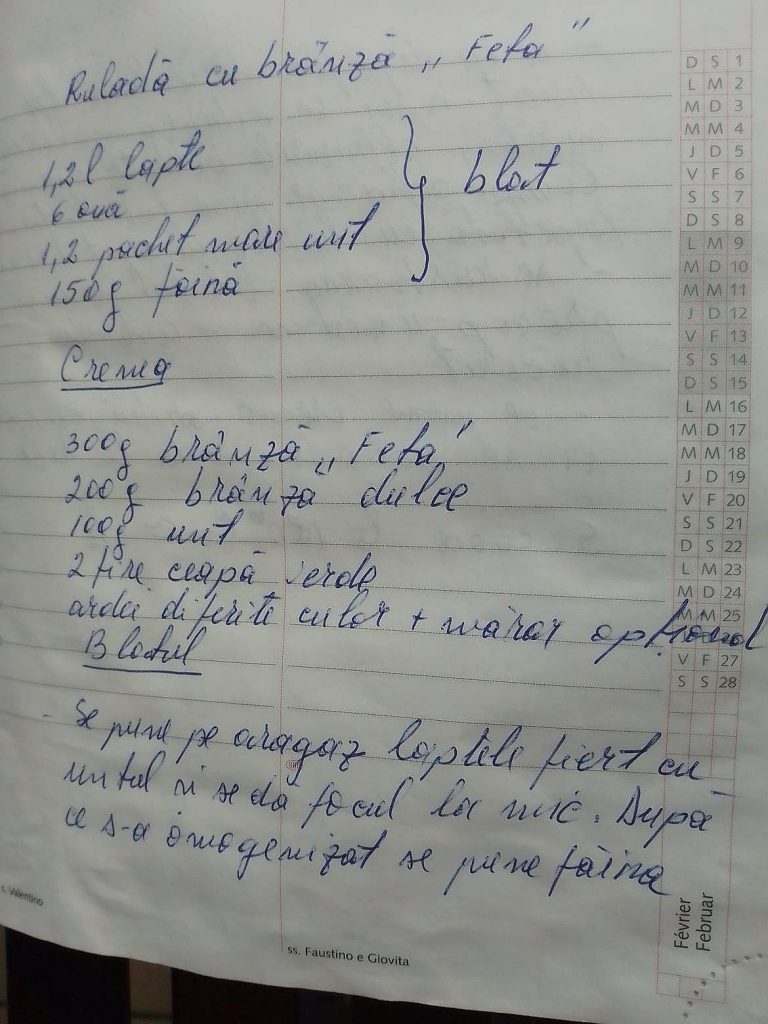 Ruladă cu brânză „Feta"
1,2 l lapte
6 ouă
1,2 pachet mare unt
150g făină
} blat
Crema
300g brânză „Feta"
200g brânză dulce
100g unt
2 fire ceapă verde
ardei diferite culor + mărar opțional
Blatul
- Se pune pe aragaz laptele fiert cu
untul și se dă focul la mic. După
ce s-a omogenizat se pune făina
D S 1
L M 2
M D 3
M M 4
J D 5
V F 6
S S 7
D S 8
L M 9
M D 10
M M 11
J D 12
V F 13
S S 14
D S 15
L M 16
M D 17
M M 18
J D 19
V F 20
S S 21
D S 22
L M 23
M D 24
M M 25
V F 27
S S 28
Février
Februar
s. Valentino
ss. Faustino e Giovita